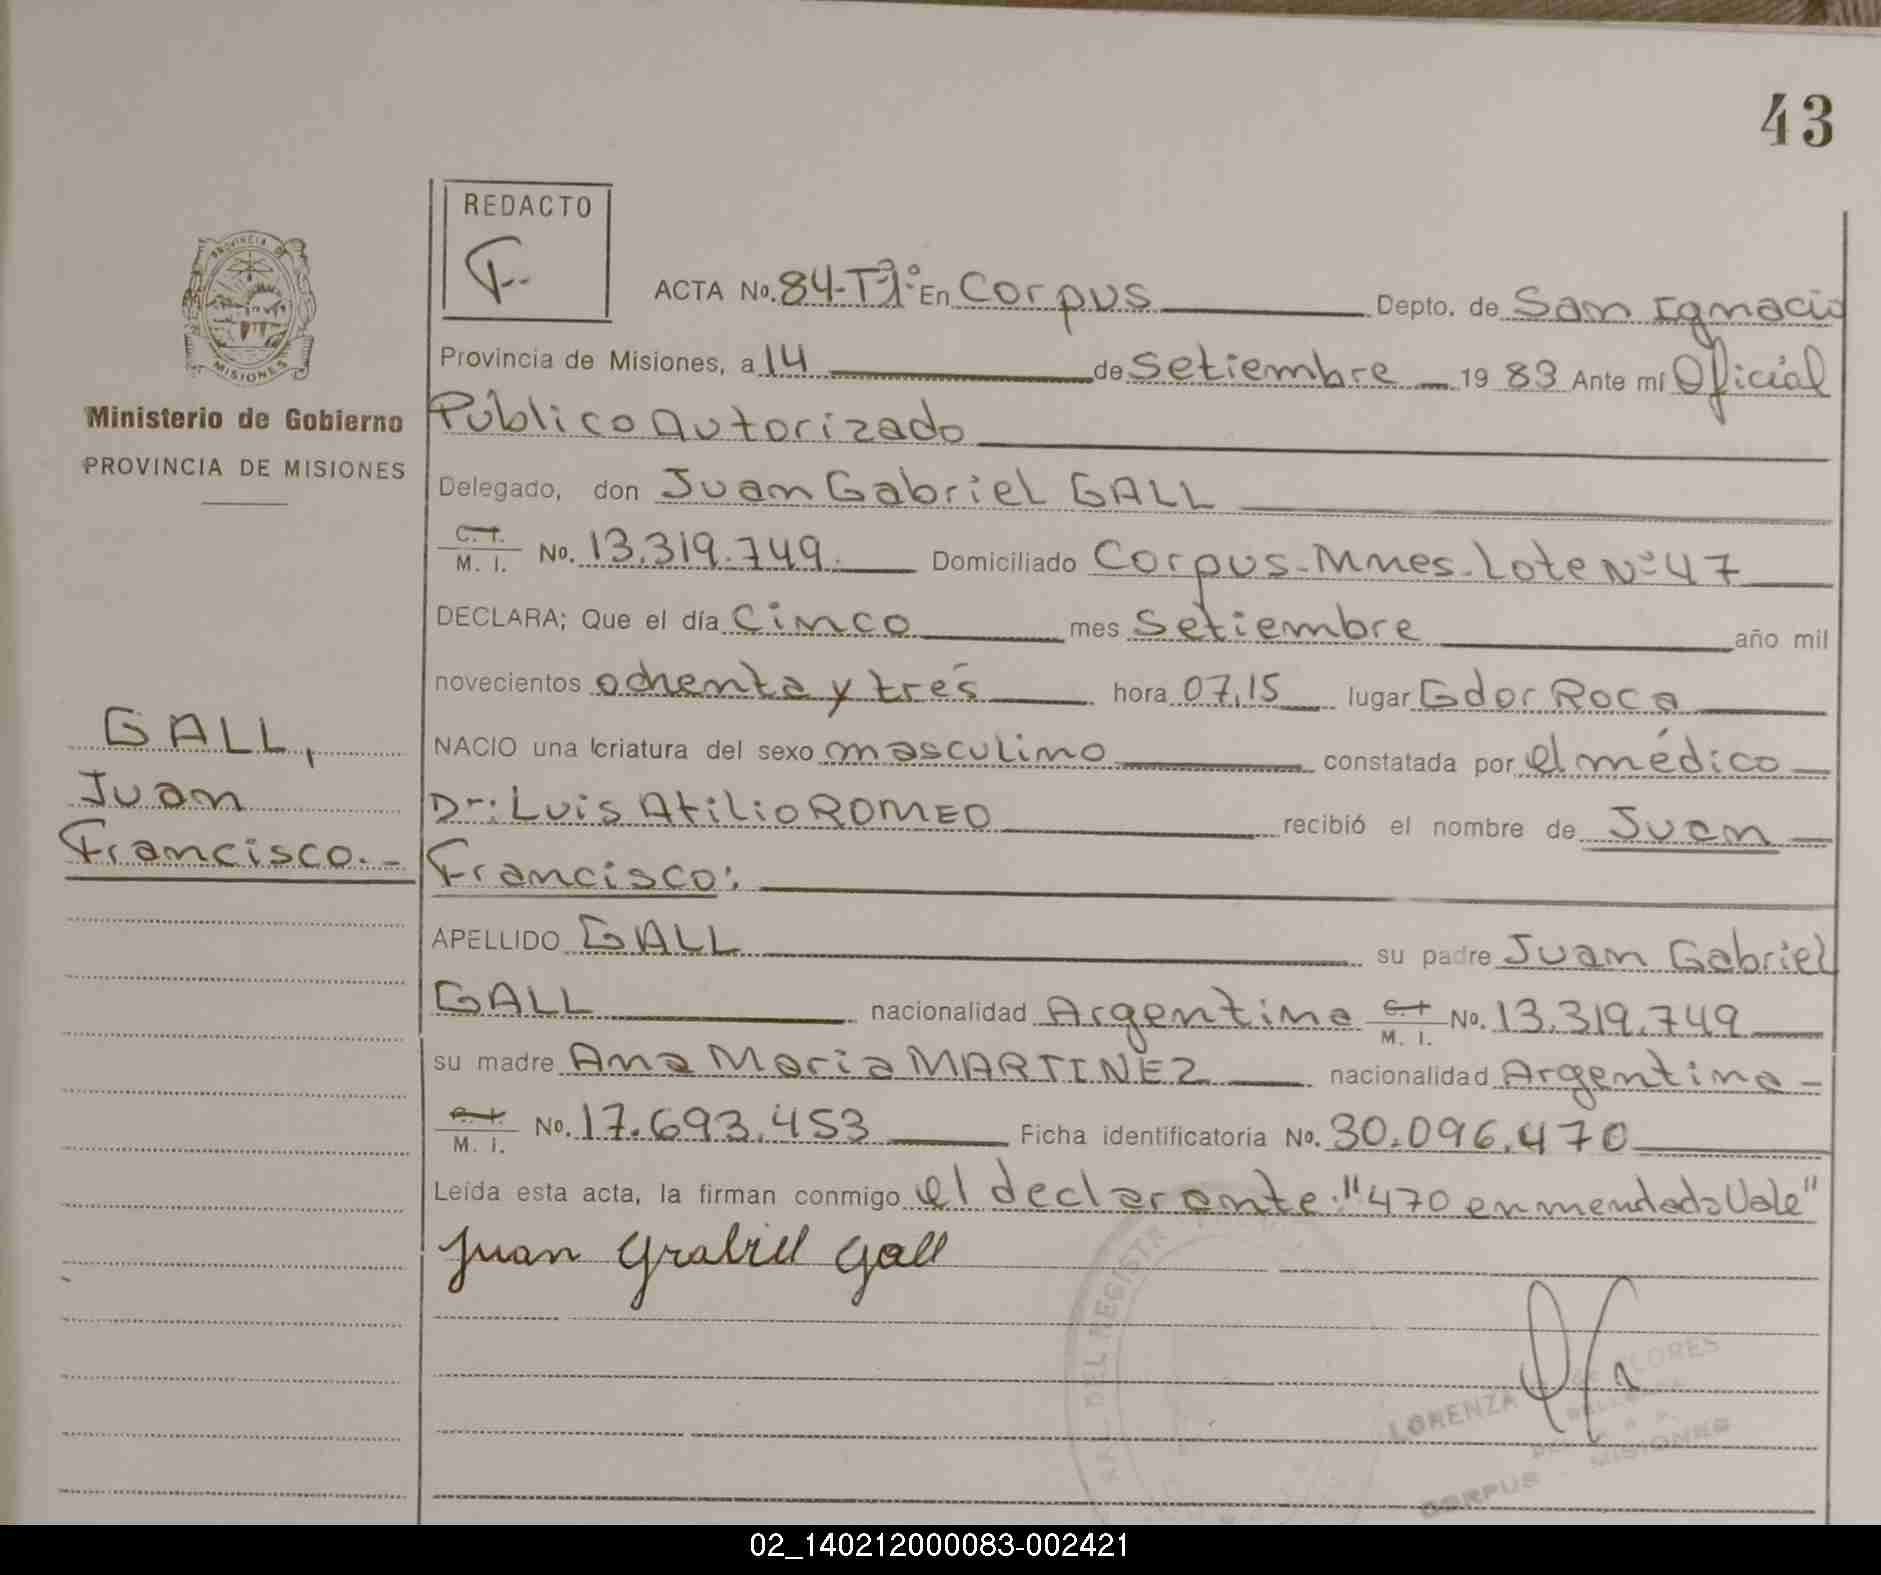 43
REDACTO
F.
ACTA No. 84-T1º En Corpus Depto. de San Ignacio
Provincia de Misiones, a 14 de Setiembre 19 83 Ante mí Oficial
Público Autorizado
Delegado, don Juan Gabriel GALL
C.I. M. I. No. 13.319.749. Domiciliado Corpus-Mnes-Lote Nº 47
DECLARA; Que el día Cinco mes Setiembre año mil
novecientos ochenta y tres hora 07,15 lugar Gdor Roca
NACIO una criatura del sexo masculino constatada por el médico
Dr: Luis Atilio ROMEO recibió el nombre de Juan
Francisco:
APELLIDO GALL su padre Juan Gabriel
GALL nacionalidad Argentina C.I. M. I. No. 13.319.749
su madre Ana Maria MARTINEZ nacionalidad Argentina
C.I. M. I. No. 17.693.453 Ficha identificatoria No. 30.096.470
Leída esta acta, la firman conmigo el declarante: "470 enmendado Vale"
Juan Grabiel Gall
Ministerio de Gobierno
PROVINCIA DE MISIONES
GALL,
Juan
Francisco.-
PROVINCIA DE
MISIONES
DEL REGISTR
LORENZA DE FLORES
CORPUS MISIONES
02_140212000083-002421